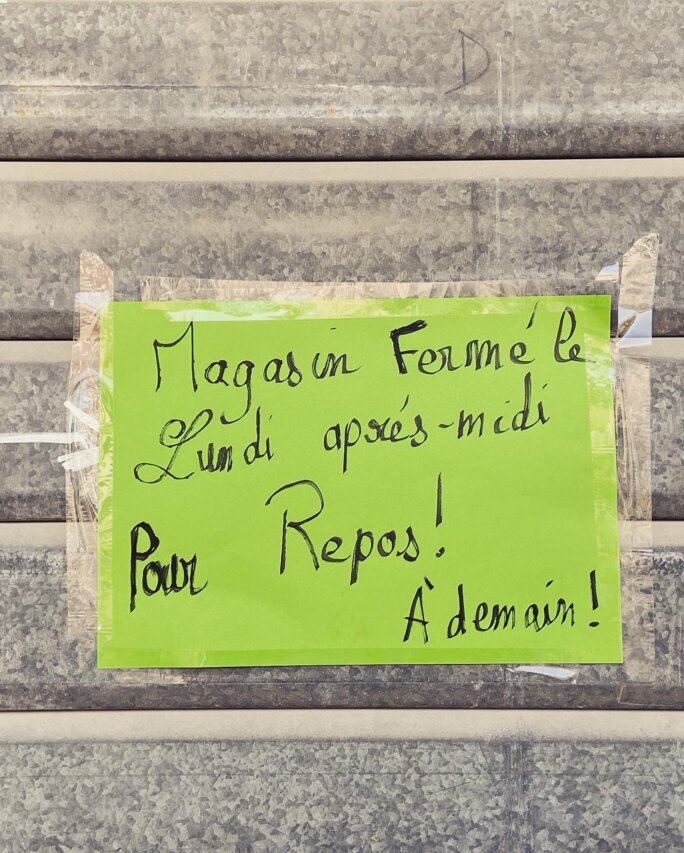 D
Magasin Fermé le
Lundi aprés-midi
Pour Repos!
À demain!